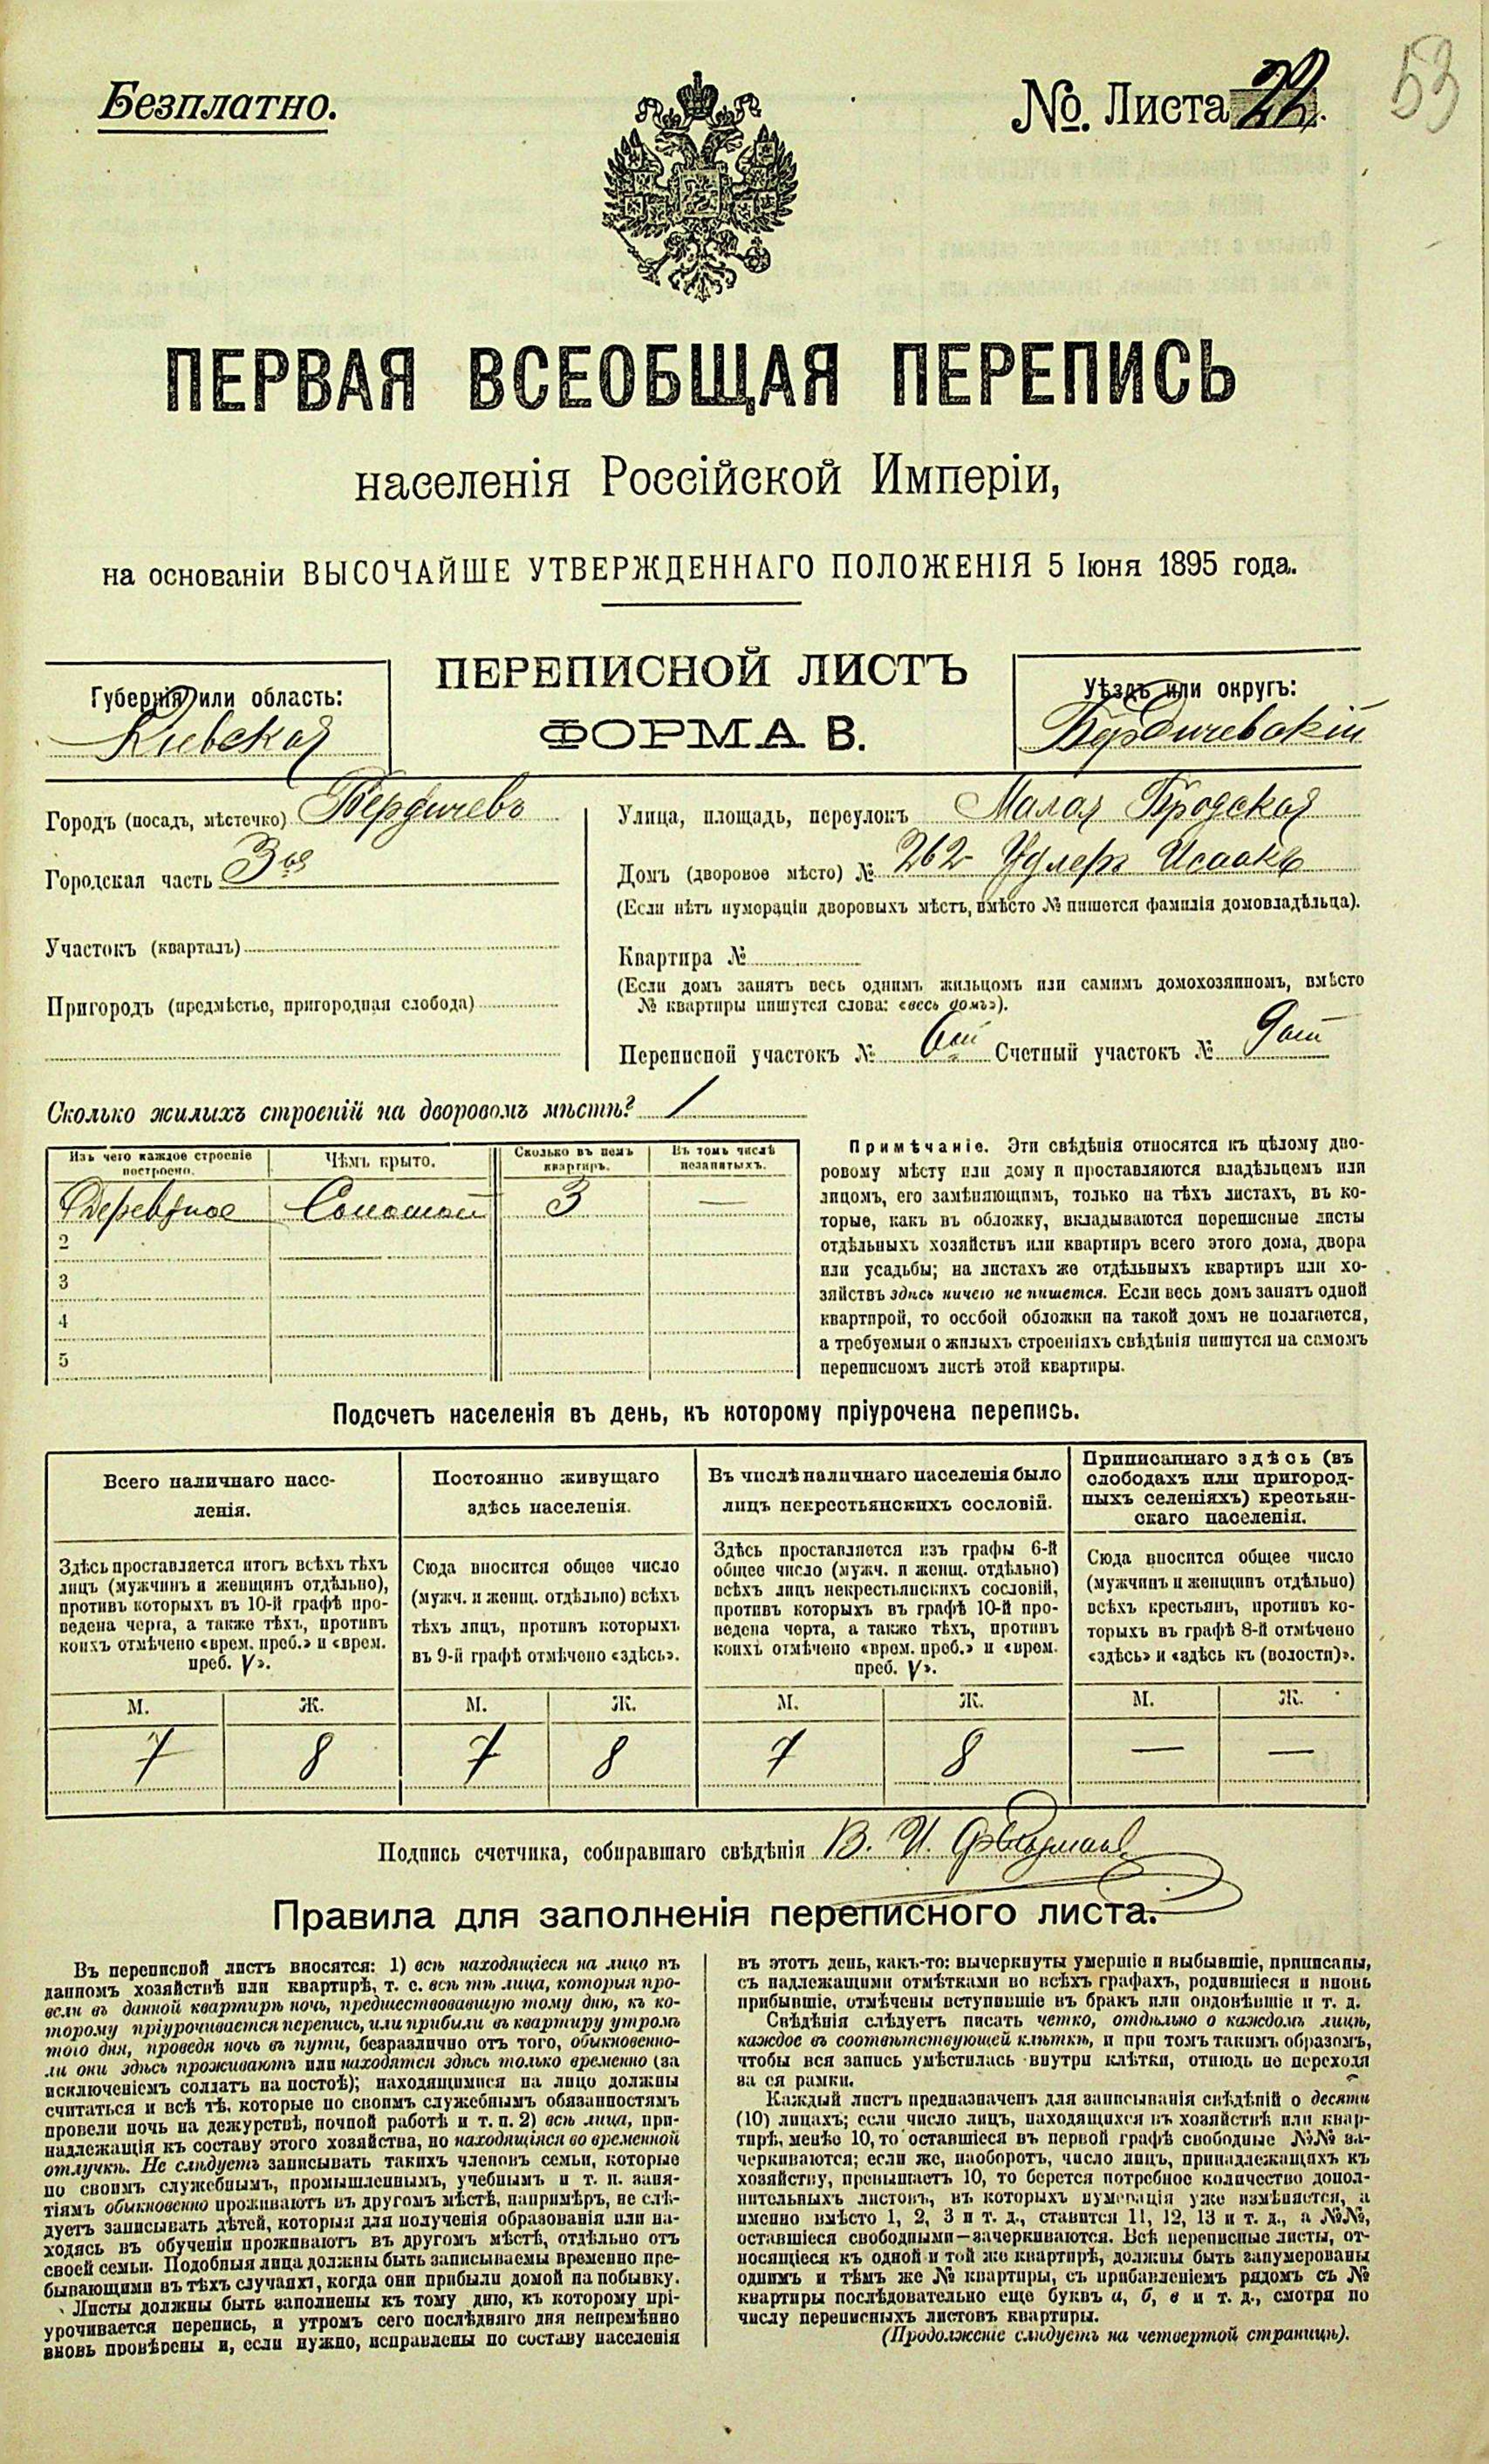 Безплатно.
№. Листа 22.
53
ПЕРВАЯ ВСЕОБЩАЯ ПЕРЕПИСЬ
населенія Россійской Имперіи,
на основаніи ВЫСОЧАЙШЕ УТВЕРЖДЕННАГО ПОЛОЖЕНІЯ 5 Іюня 1895 года.
ПЕРЕПИСНОЙ ЛИСТЪ
ФОРМА В.
Губернія или область:
Кіевская
Уѣздъ или округъ:
Бердичевскій
Городъ (посадъ, мѣстечко) Бердичевъ
Городская часть 3ья
Участокъ (кварталъ)
Пригородъ (предмѣстье, пригородная слобода)
Улица, площадь, переулокъ Малая Бродская
Домъ (дворовое мѣсто) № 262 Удлеръ Исаакъ
(Если нѣтъ нумераціи дворовыхъ мѣстъ, вмѣсто № пишется фамилія домовладѣльца).
Квартира №
(Если домъ занятъ весь однимъ жильцомъ или самимъ домохозяиномъ, вмѣсто
№ квартиры пишутся слова: «весь домъ»).
Переписной участокъ № 6ой Счетный участокъ № 9ый
Сколько жилыхъ строеній на дворовомъ мѣстѣ? 1
Изъ чего каждое строеніе построено.
Чѣмъ крыто.
Сколько въ немъ квартиръ.
Въ томъ числѣ незанятыхъ.
Деревяное Соломой 3 —
2
3
4
5
Примѣчаніе. Эти свѣдѣнія относятся къ цѣлому дво-
ровому мѣсту или дому и проставляются владѣльцемъ или
лицомъ, его замѣняющимъ, только на тѣхъ листахъ, въ ко-
торые, какъ въ обложку, вкладываются переписные листы
отдѣльныхъ хозяйствъ или квартиръ всего этого дома, двора
или усадьбы; на листахъ же отдѣльныхъ квартиръ или хо-
зяйствъ здѣсь ничего не пишется. Если весь домъ занятъ одной
квартирой, то особой обложки на такой домъ не полагается,
а требуемыя о жилыхъ строеніяхъ свѣдѣнія пишутся на самомъ
переписномъ листѣ этой квартиры.
Подсчетъ населенія въ день, къ которому пріурочена перепись.
Всего наличнаго насе-
ленія.
Здѣсь проставляется итогъ всѣхъ тѣхъ
лицъ (мужчинъ и женщинъ отдѣльно),
противъ которыхъ въ 10-й графѣ про-
ведена черта, а также тѣхъ, противъ
коихъ отмѣчено «врем. преб.» и «врем.
преб. V».
Постоянно живущаго
здѣсь населенія.
Сюда вносится общее число
(мужч. и женщ. отдѣльно) всѣхъ
тѣхъ лицъ, противъ которыхъ
въ 9-й графѣ отмѣчено «здѣсь».
Въ числѣ наличнаго населенія было
лицъ некрестьянскихъ сословій.
Здѣсь проставляется изъ графы 6-й
общее число (мужч. и женщ. отдѣльно)
всѣхъ лицъ некрестьянскихъ сословій,
противъ которыхъ въ графѣ 10-й про-
ведена черта, а также тѣхъ, противъ
коихъ отмѣчено «врем. преб.» и «врем.
преб. V».
Приписаннаго здѣсь (въ
слободахъ или пригород-
ныхъ селеніяхъ) крестьян-
скаго населенія.
Сюда вносится общее число
(мужчинъ и женщинъ отдѣльно)
всѣхъ крестьянъ, противъ ко-
торыхъ въ графѣ 8-й отмѣчено
«здѣсь» и «здѣсь къ (волости)».
М. Ж. М. Ж. М. Ж. М. Ж.
7 8 7 8 7 8 — —
Подпись счетчика, собиравшаго свѣдѣнія В. И.
Правила для заполненія переписного листа.
Въ переписной листъ вносятся: 1) всѣ находящіеся на лицо въ
данномъ хозяйствѣ или квартирѣ, т. е. всѣ тѣ лица, которыя про-
вели въ данной квартирѣ ночь, предшествовавшую тому дню, къ ко-
торому пріурочивается перепись, или прибыли въ квартиру утромъ
того дня, проведя ночь въ пути, безразлично отъ того, обыкновенно-
ли они здѣсь проживаютъ или находятся здѣсь только временно (за
исключеніемъ солдатъ на постоѣ); находящимися на лицо должны
считаться и всѣ тѣ, которые по своимъ служебнымъ обязанностямъ
провели ночь на дежурствѣ, ночной работѣ и т. п. 2) всѣ лица, при-
надлежащія къ составу этого хозяйства, но находящіяся во временной
отлучкѣ. Не слѣдуетъ записывать такихъ членовъ семьи, которые
по своимъ служебнымъ, промышленнымъ, учебнымъ и т. п. заня-
тіямъ обыкновенно проживаютъ въ другомъ мѣстѣ, напримѣръ, не слѣ-
дуетъ записывать дѣтей, которыя для полученія образованія или на-
ходясь въ обученіи проживаютъ въ другомъ мѣстѣ, отдѣльно отъ
своей семьи. Подобныя лица должны быть записываемы временно пре-
бывающими въ тѣхъ случаяхъ, когда они прибыли домой на побывку.
Листы должны быть заполнены къ тому дню, къ которому прі-
урочивается перепись, и утромъ сего послѣдняго дня непремѣнно
вновь провѣрены и, если нужно, исправлены по составу населенія
въ этотъ день, какъ-то: вычеркнуты умершіе и выбывшіе, приписаны,
съ надлежащими отмѣтками во всѣхъ графахъ, родившіеся и вновь
прибывшіе, отмѣчены вступившіе въ бракъ или овдовѣвшіе и т. д.
Свѣдѣнія слѣдуетъ писать четко, отдѣльно о каждомъ лицѣ,
каждое въ соотвѣтствующей клѣткѣ, и при томъ такимъ образомъ,
чтобы вся запись умѣстилась внутри клѣтки, отнюдь не переходя
за ея рамки.
Каждый листъ предназначенъ для записыванія свѣдѣній о десяти
(10) лицахъ; если число лицъ, находящихся въ хозяйствѣ или квар-
тирѣ, менѣе 10, то оставшіеся въ первой графѣ свободные №№ за-
черкиваются; если же, наоборотъ, число лицъ, принадлежащихъ къ
хозяйству, превышаетъ 10, то берется потребное количество допол-
нительныхъ листовъ, въ которыхъ нумерація уже измѣняется, а
именно вмѣсто 1, 2, 3 и т. д., ставится 11, 12, 13 и т. д., а №№,
оставшіеся свободными—зачеркиваются. Всѣ переписные листы, от-
носящіеся къ одной и той же квартирѣ, должны быть занумерованы
однимъ и тѣмъ же № квартиры, съ прибавленіемъ рядомъ съ №
квартиры послѣдовательно еще буквъ а, б, в и т. д., смотря по
числу переписныхъ листовъ квартиры.
(Продолженіе слѣдуетъ на четвертой страницѣ).